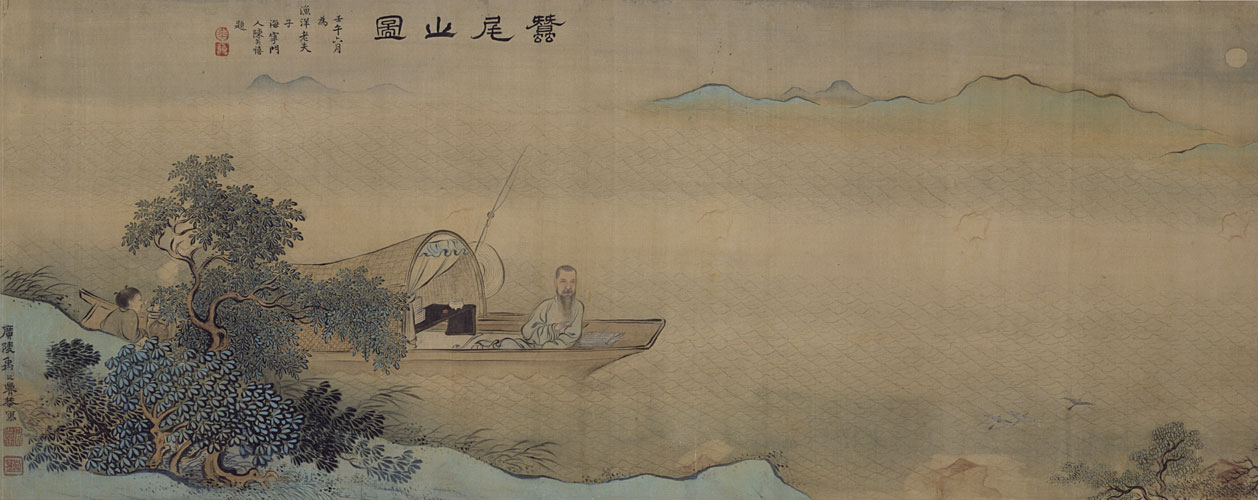 蠶尾山圖
壬午六月
為
漁洋老夫
子
海寧門
人陳奕禧
題
廣陵禹之鼎恭寫